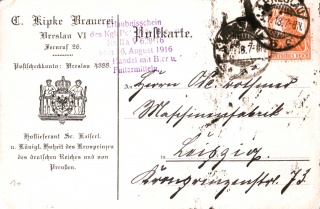 C. Kipke Brauerei
Breslau VI
Fernruf 26.
Postscheckkonto: Breslau 4388.
Hoflieferant Sr. Kaiserl.
u. Königl. Hoheit des Kronprinzen
des deutschen Reiches und von
Preußen.
Erlaubnisschein
des Kgl.
August 1916
Handel mit Bier u.
Futtermitteln.
Postkarte.
Herren
Maschinenfabrik
Leipzig
Kronprinzenstr. 73.